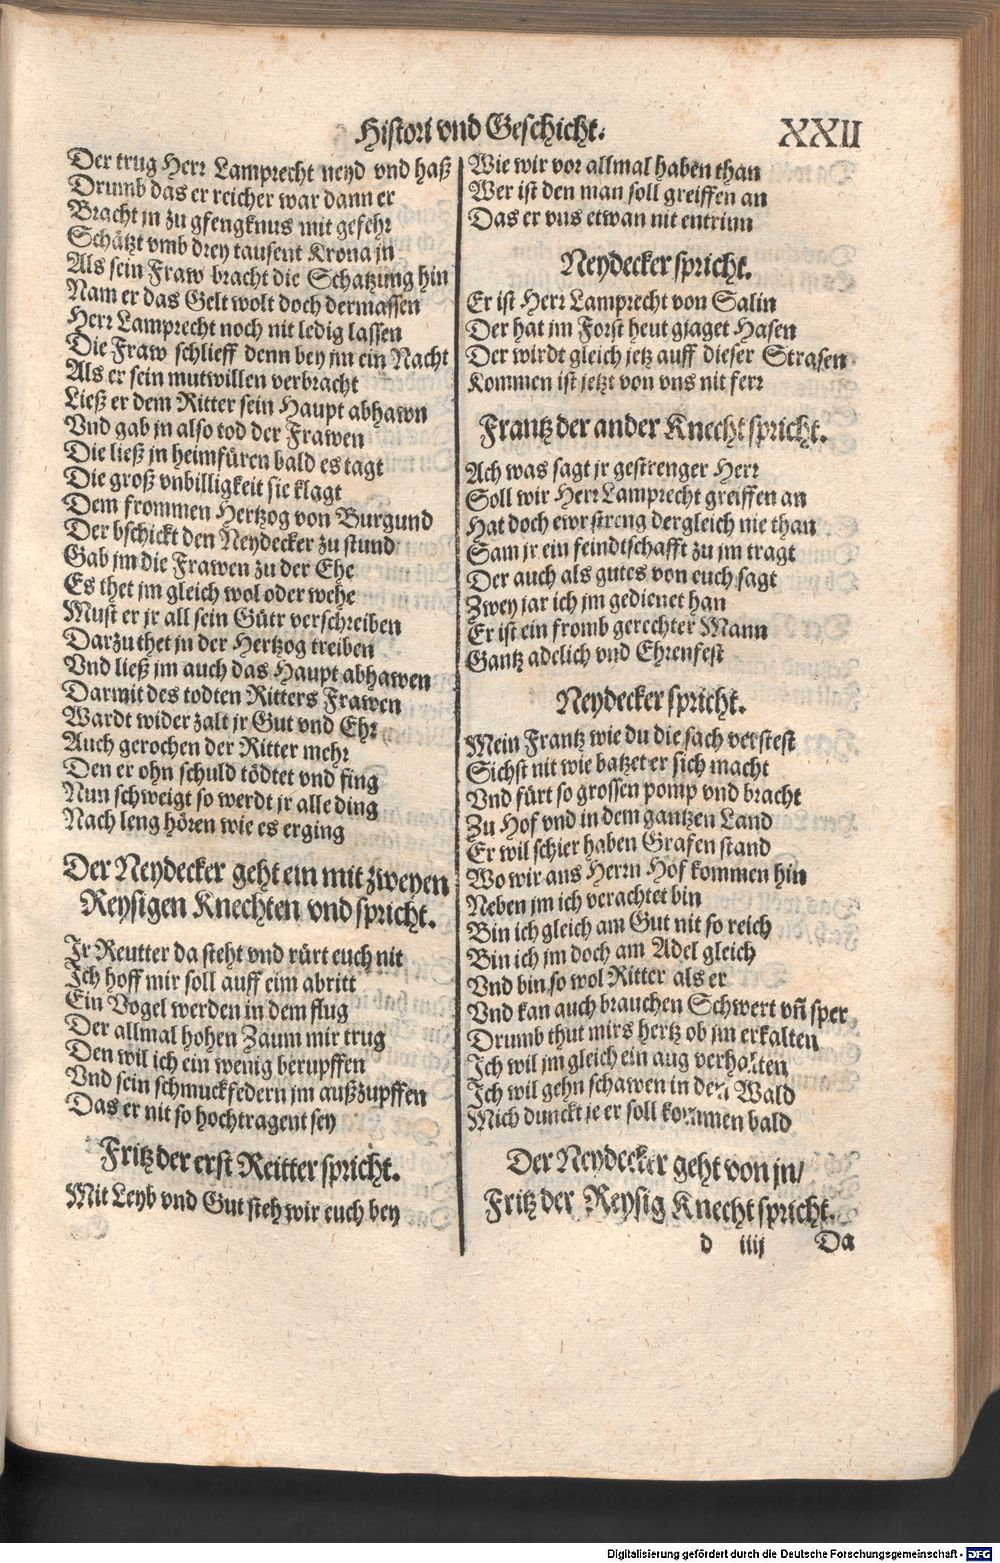 Histori vnd Geschicht. XXII
Der trug Herr Lamprecht neyd vnd haß
Drumb das er reicher war dann er
Bracht jn zu gfengknus mit gefehr
Schätzt vmb drey tausent Krona jn
Als sein Fraw bracht die Schatzung hin
Nam er das Gelt wolt doch dermassen
Herr Lamprecht noch nit ledig lassen
Die Fraw schlieff denn bey jm ein Nacht
Als er sein mutwillen verbracht
Ließ er dem Ritter sein Haupt abhawn
Vnd gab jn also tod der Frawen
Die ließ jn heimfüren bald es tagt
Die groß vnbilligkeit sie klagt
Dem frommen Hertzog von Burgund
Der bschickt den Neydecker zu stund
Gab jm die Frawen zu der Ehe
Es thet jm gleich wol oder wehe
Must er jr all sein Gütr verschreiben
Darzu thet jn der Hertzog treiben
Vnd ließ jm auch das Haupt abhawen
Darmit des todten Ritters Frawen
Wardt wider zalt jr Gut vnd Ehr
Auch gerochen der Ritter mehr
Den er ohn schuld tödtet vnd fing
Nun schweigt so werdt jr alle ding
Nach leng hören wie es erging
Der Neydecker geht ein mit zweyen
Reysigen Knechten vnd spricht.
Jr Reutter da steht vnd rürt euch nit
Jch hoff mir soll auff eim abritt
Ein Vogel werden in dem flug
Der allmal hohen Zaum mir trug
Den wil ich ein wenig berupffen
Vnd sein schmuckfedern jm außzupffen
Das er nit so hochtragent sey
Fritz der erst Reitter spricht.
Mit Leyb vnd Gut steh wir euch bey
Wie wir vor allmal haben than
Wer ist den man soll greiffen an
Das er vns etwan nit entrinn
Neydecker spricht.
Er ist Herr Lamprecht von Salin
Der hat im Forst heut gjaget Hasen
Der wirdt gleich jetz auff dieser Strasen
Kommen ist jetzt von vns nit ferr
Frantz der ander Knecht spricht.
Ach was sagt jr gestrenger Herr
Soll wir Herr Lamprecht greiffen an
Hat doch ewr streng dergleich nie than
Sam jr ein feindtschafft zu jm tragt
Der auch als gutes von euch sagt
Zwey jar ich jm gedienet han
Er ist ein fromb gerechter Mann
Gantz adelich vnd Ehrenfest
Neydecker spricht.
Mein Frantz wie du die sach verstest
Sichst nit wie batzet er sich macht
Vnd fürt so grossen pomp vnd bracht
Zu Hof vnd in dem gantzen Land
Er wil schier haben Grafen stand
Wo wir ans Herrn Hof kommen hin
Neben jm ich verachtet bin
Bin ich gleich am Gut nit so reich
Bin ich jm doch am Adel gleich
Vnd bin so wol Ritter als er
Vnd kan auch brauchen Schwert vñ sper
Drumb thut mirs hertz ob jm erkalten
Jch wil jm gleich ein aug verhalten
Jch wil gehn schawen in den Wald
Mich dunckt je er soll kommen bald
Der Neydecker geht von jn/
Fritz der Reysig Knecht spricht.
d iiij Da
Digitalisierung gefördert durch die Deutsche Forschungsgemeinschaft - DFG